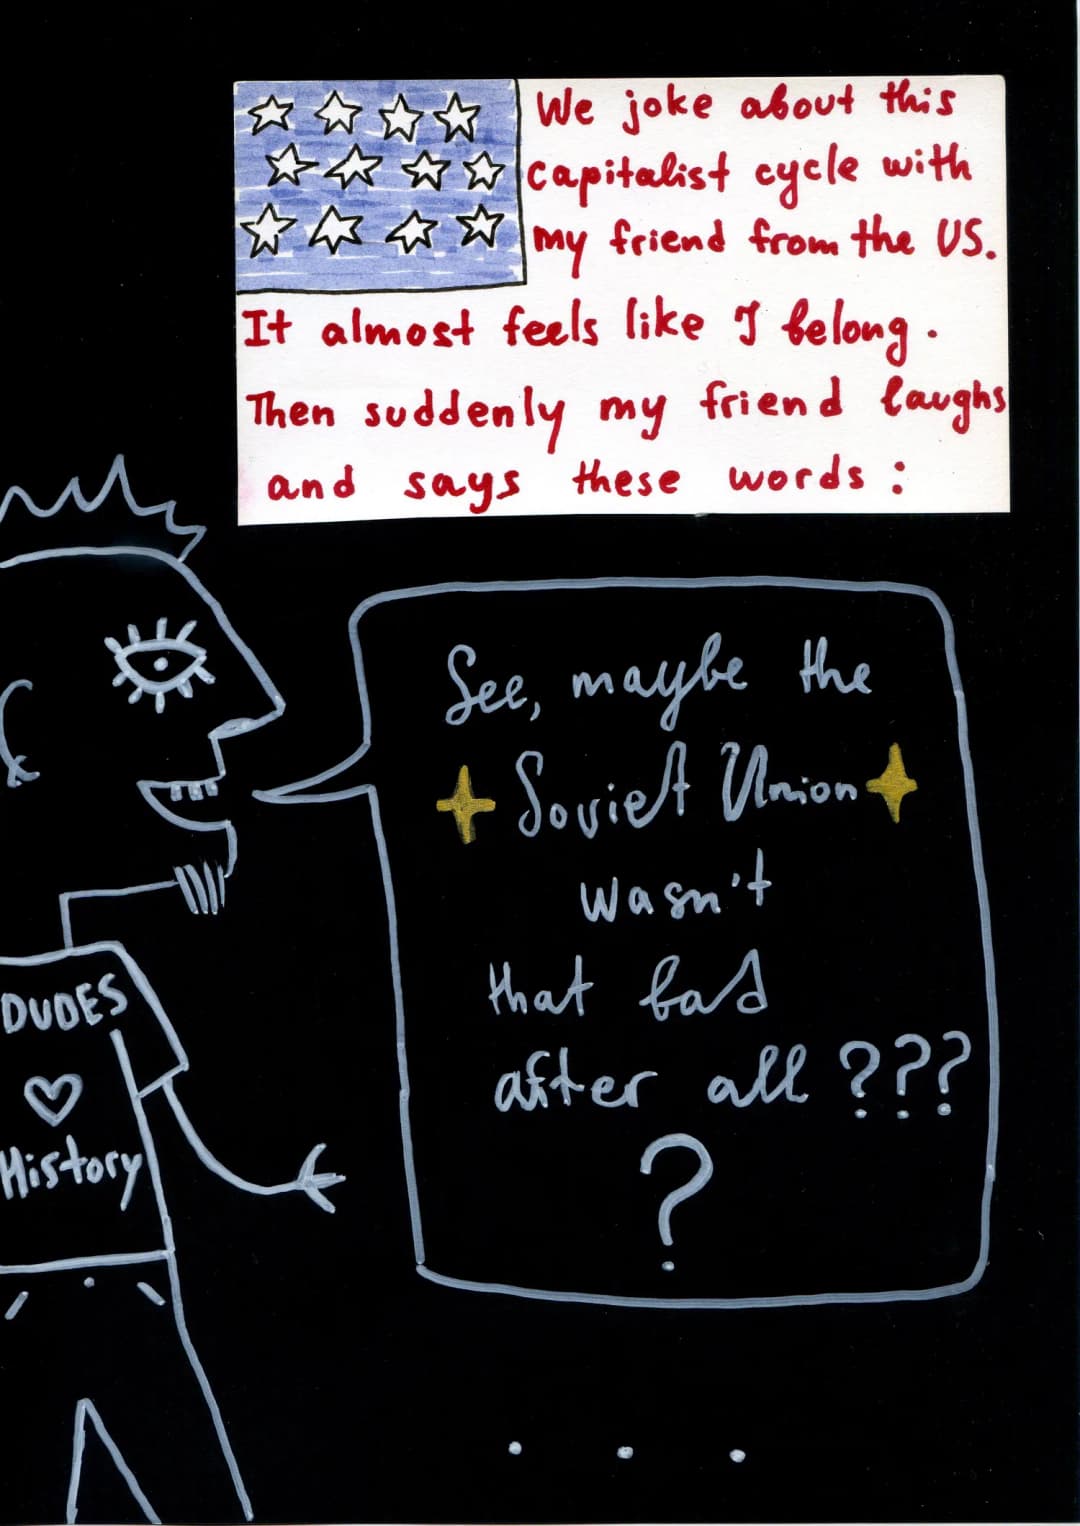 We joke about this
capitalist cycle with
my friend from the US.
It almost feels like I belong.
Then suddenly my friend laughs
and says these words:
See, maybe the
Soviet Union
wasn't
that bad
after all???
?
DUDES
♡
History
. . .